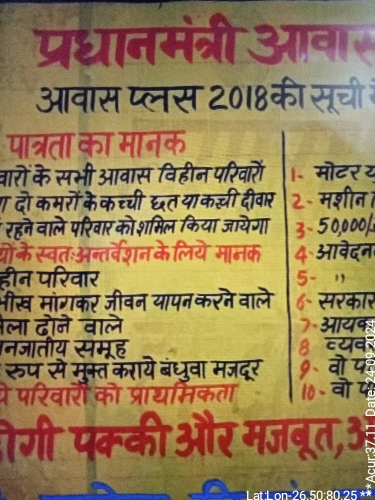 प्रधानमंत्री आवास
आवास प्लस 2018 की सूची मे
पात्रता का मानक
वारों के सभी आवास विहीन परिवारों
दो कमरों के कच्ची छत या कच्ची दीवार
रहने वाले परिवार को शमिल किया जायेगा
यों के स्वतः अन्तर्वेशन के लिये मानक
हीन परिवार
भीख मांगकर जीवन यापन करने वाले
मैला ढोने वाले
नजातीय समूह
रुप से मुक्त कराये बंधुवा मजदूर
ये परिवारों को प्राथमिकता
1- मोटर यु
2- मशीन
3- 50,000/
4- आवेदन
5- "
6- सरकार
7- आयक
8 व्यव
9- वो प
10- वो प
होगी पक्की और मजबूत, अ
Lat:Lon-26.50:80.25
***Acur:37.11, Date:24-09-2024